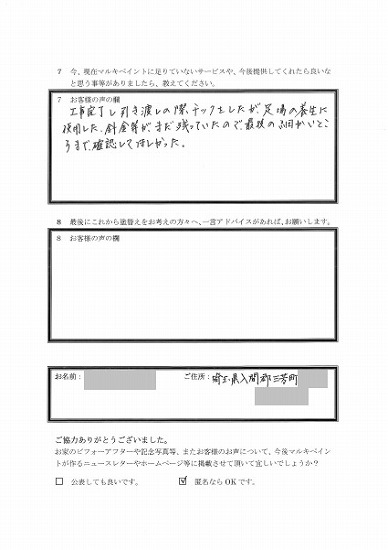 7 今、現在マルキペイントに足りていないサービスや、今後提供してくれたら良いな
と思う事等がありましたら、教えてください。
7 お客様の声の欄
工事完了し引き渡しの際、チェックをしたが足場の養生に
使用した、針金等が、まだ残っていたので最後の細かいとこ
ろまで、確認してほしかった。
8 最後にこれから塗替えをお考えの方々へ、一言アドバイスがあれば、お願いします。
8 お客様の声の欄
お名前： ご住所：埼玉県入間郡三芳町
ご協力ありがとうございました。
お家のビフォーアフターや記念写真等、またお客様のお声について、今後マルキペイン
トが作るニュースレターやホームページ等に掲載させて頂いて宜しいでしょうか？
□ 公表しても良いです。 ☑ 匿名ならOKです。